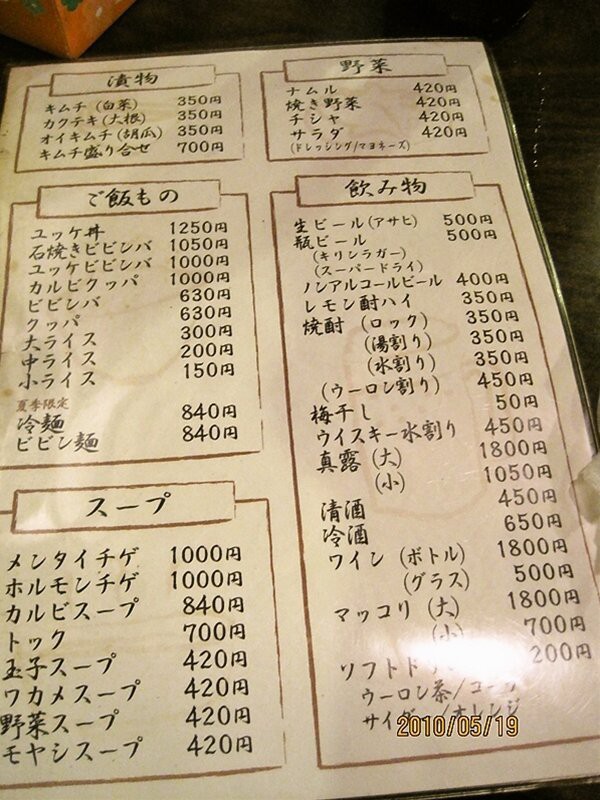 漬物
キムチ (白菜) 350円
カクテキ (大根) 350円
オイキムチ (胡瓜) 350円
キムチ盛り合せ 700円
ご飯もの
ユッケ丼 1250円
石焼きビビンバ 1050円
ユッケビビンバ 1000円
カルビクッパ 1000円
ビビンバ 630円
クッパ 630円
大ライス 300円
中ライス 200円
小ライス 150円
夏季限定
冷麺 840円
ビビン麺 840円
スープ
メンタイチゲ 1000円
ホルモンチゲ 1000円
カルビスープ 840円
トック 700円
玉子スープ 420円
ワカメスープ 420円
野菜スープ 420円
モヤシスープ 420円
野菜
ナムル 420円
焼き野菜 420円
チシャ 420円
サラダ 420円
(ドレッシング/マヨネーズ)
飲み物
生ビール (アサヒ) 500円
瓶ビール 500円
(キリンラガー)
(スーパードライ)
ノンアルコールビール 400円
レモン酎ハイ 350円
焼酎 (ロック) 350円
(湯割り) 350円
(水割り) 350円
(ウーロン割り) 450円
梅干し 50円
ウイスキー水割り 450円
真露 (大) 1800円
(小) 1050円
清酒 450円
冷酒 650円
ワイン (ボトル) 1800円
(グラス) 500円
マッコリ (大) 1800円
(小) 700円
200円
ウーロン茶/コーラ
サイダー/オレンジ
2010/05/19